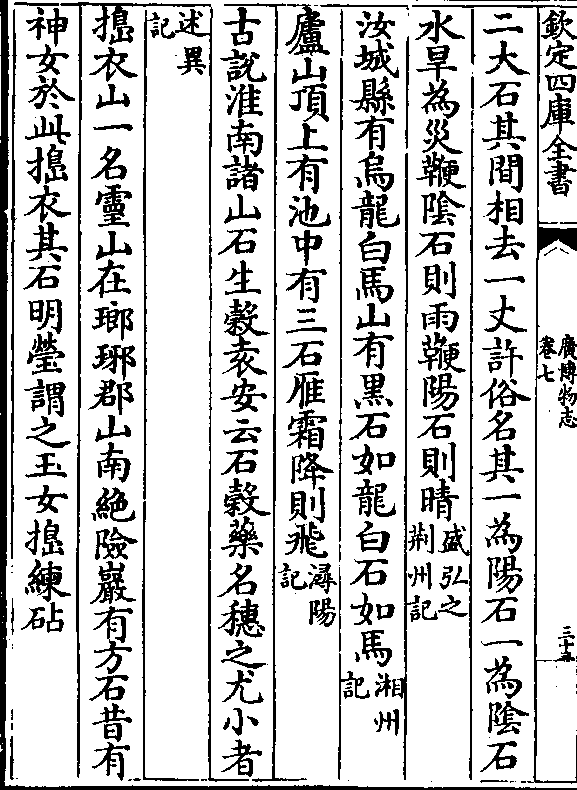 欽定四庫全書
廣博物志
卷七
三十五
二大石其間相去一丈許俗名其一為陽石一為陰石
水旱為災鞭陰石則雨鞭陽石則晴盛弘之荆州記
汝城縣有烏龍白馬山有黑石如龍白石如馬湘州記
廬山頂上有池中有三石雁霜降則飛潯陽記
古説淮南諸山石生穀袁安云石穀藥名穗之尤小者
述異記
搗衣山一名靈山在瑯琊郡山南絶險巖有方石昔有
神女於此搗衣其石明瑩謂之玉女搗練砧